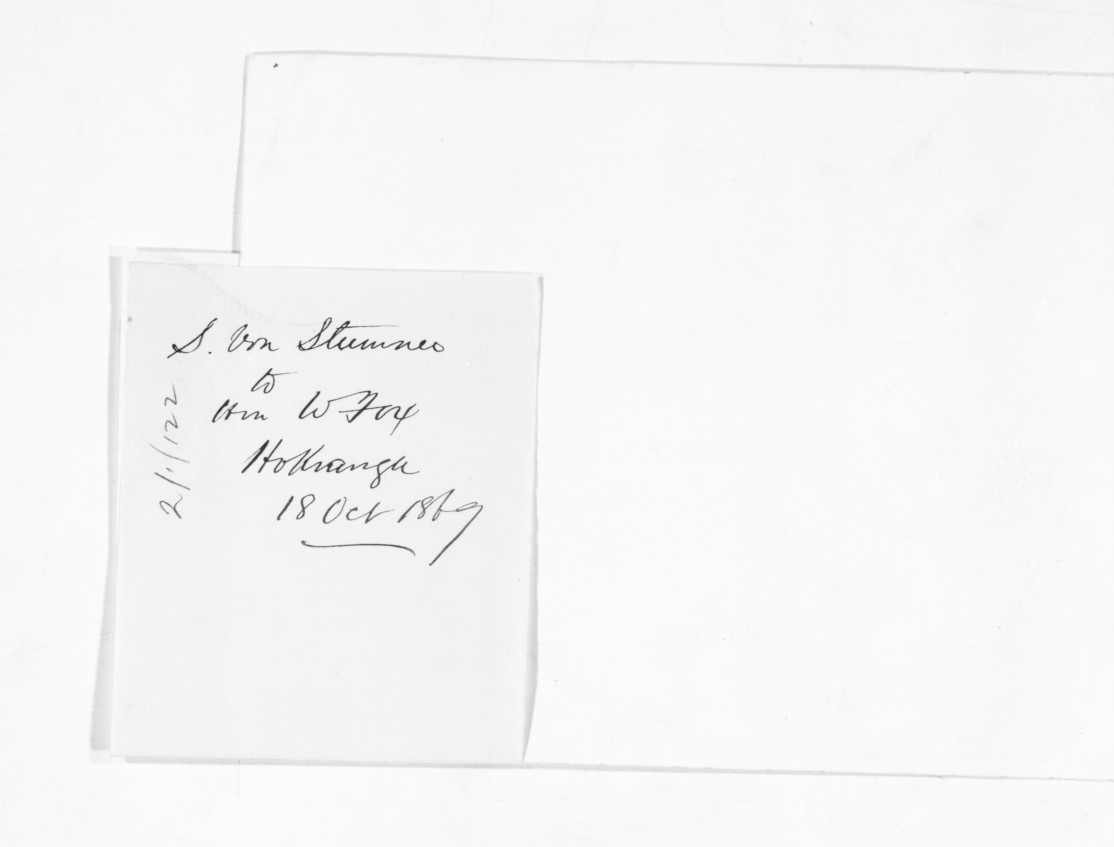 S. Von Stumner
to
Hon W Fox
Hokianga
18 Oct 1869
2/1/122